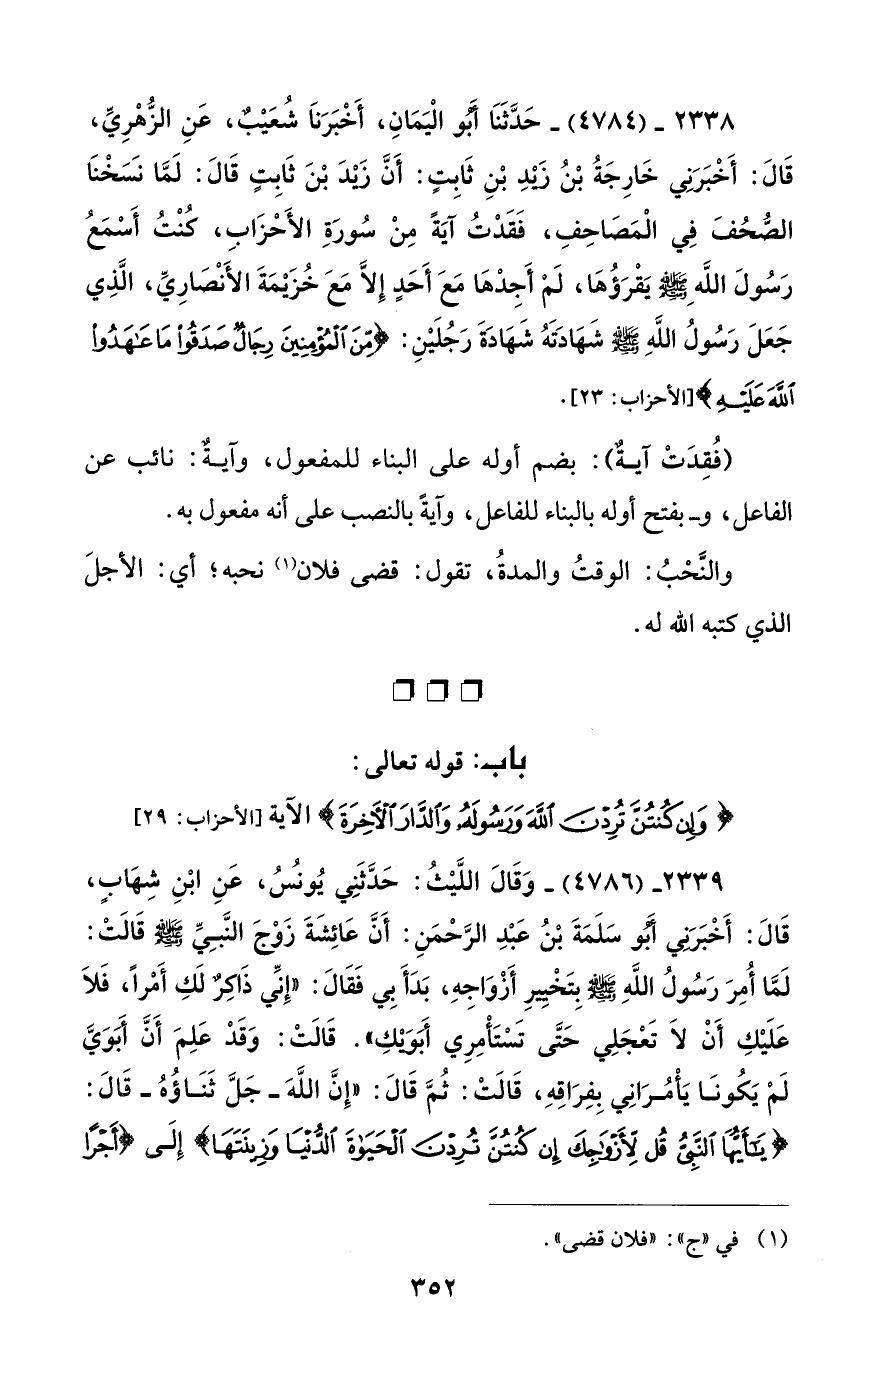 ٢٣٣٨ ـ (٤٧٨٤) ـ حَدَّثَنَا أَبُو الْيَمَانِ، أَخْبَرَنَا شُعَيْبٌ، عَنِ الزُّهْرِيِّ،
قَالَ: أَخْبَرَنِي خَارِجَةُ بْنُ زَيْدِ بْنِ ثَابِتٍ: أَنَّ زَيْدَ بْنَ ثَابِتٍ قَالَ: لَمَّا نَسَخْنَا
الصُّحُفَ فِي الْمَصَاحِفِ، فَقَدْتُ آيَةً مِنْ سُورَةِ الأَحْزَابِ، كُنْتُ أَسْمَعُ
رَسُولَ اللَّهِ ﷺ يَقْرَؤُهَا، لَمْ أَجِدْهَا مَعَ أَحَدٍ إِلاَّ مَعَ خُزَيْمَةَ الأَنْصَارِيِّ، الَّذِي
جَعَلَ رَسُولُ اللَّهِ ﷺ شَهَادَتَهُ شَهَادَةَ رَجُلَيْنِ: ﴿مِّنَ ٱلْمُؤْمِنِينَ رِجَالٌ صَدَقُوا۟ مَا عَـٰهَدُوا۟
ٱللَّهَ عَلَيْهِ﴾ [الأحزاب: ٢٣].
(فُقِدَتْ آيةٌ): بضم أوله على البناء للمفعول، وآيةٌ: نائب عن
الفاعل، وـ بفتح أوله بالبناء للفاعل، وآيةً بالنصب على أنه مفعول به.
والنَّحْبُ: الوقتُ والمدةُ، تقول: قضى فلان(١) نحبه؛ أي: الأجلَ
الذي كتبه الله له.
❒ ❒ ❒
باب: قوله تعالى:
﴿وَإِن كُنتُنَّ تُرِدْنَ ٱللَّهَ وَرَسُولَهُۥ وَٱلدَّارَ ٱلْـَٔاخِرَةَ﴾ الآية [الأحزاب: ٢٩]
٢٣٣٩ـ (٤٧٨٦) ـ وَقَالَ اللَّيْثُ: حَدَّثَنِي يُونُسُ، عَنِ ابْنِ شِهَابٍ،
قَالَ: أَخْبَرَنِي أَبُو سَلَمَةَ بْنُ عَبْدِ الرَّحْمَنِ: أَنَّ عَائِشَةَ زَوْجَ النَّبِيِّ ﷺ قَالَتْ:
لَمَّا أُمِرَ رَسُولُ اللَّهِ ﷺ بِتَخْيِيرِ أَزْوَاجِهِ، بَدَأَ بِي فَقَالَ: «إِنِّي ذَاكِرٌ لَكِ أَمْراً، فَلاَ
عَلَيْكِ أَنْ لاَ تَعْجَلِي حَتَّى تَسْتَأْمِرِي أَبَوَيْكِ». قَالَتْ: وَقَدْ عَلِمَ أَنَّ أَبَوَيَّ
لَمْ يَكُونَا يَأْمُرَانِي بِفِرَاقِهِ، قَالَتْ: ثُمَّ قَالَ: «إِنَّ اللَّهَ ـ جَلَّ ثَنَاؤُهُ ـ قَالَ:
﴿يَـٰٓأَيُّهَا ٱلنَّبِىُّ قُل لِّأَزْوَٰجِكَ إِن كُنتُنَّ تُرِدْنَ ٱلْحَيَوٰةَ ٱلدُّنْيَا وَزِينَتَهَا﴾ إِلَى ﴿أَجْرًا
(١) في «ج»: «فلان قضى».
٣٥٢